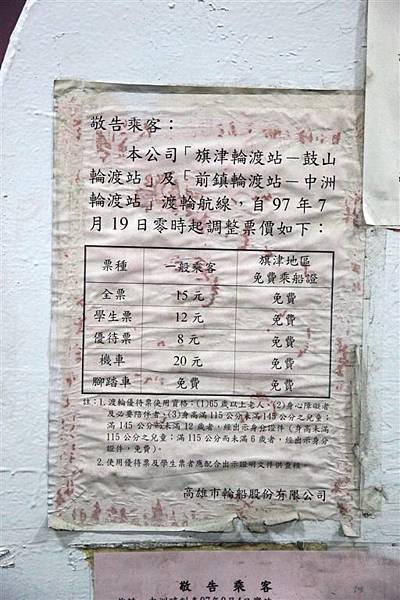 敬告乘客：
本公司「旗津輪渡站－鼓山
輪渡站」及「前鎮輪渡站－中洲
輪渡站」渡輪航線，自97年7
月19日零時起調整票價如下：
票種 一般乘客 旗津地區
免費乘船證
全票 15元 免費
學生票 12元 免費
優待票 8元 免費
機車 20元 免費
腳踏車 免費 免費
註：1.渡輪優待票使用資格：(1)65歲以上老人、(2)身心障礙者
及必要陪伴者、(3)身高滿115公分未滿145公分之兒童；
滿145公分未滿12歲者，經出示身分證件（身高未滿
115公分之兒童；滿115公分未滿6歲者，經出示身分
證件，免費）。
2.使用優待票及學生票者應配合出示證明文件供查驗。
高雄市輪船股份有限公司
敬告乘客